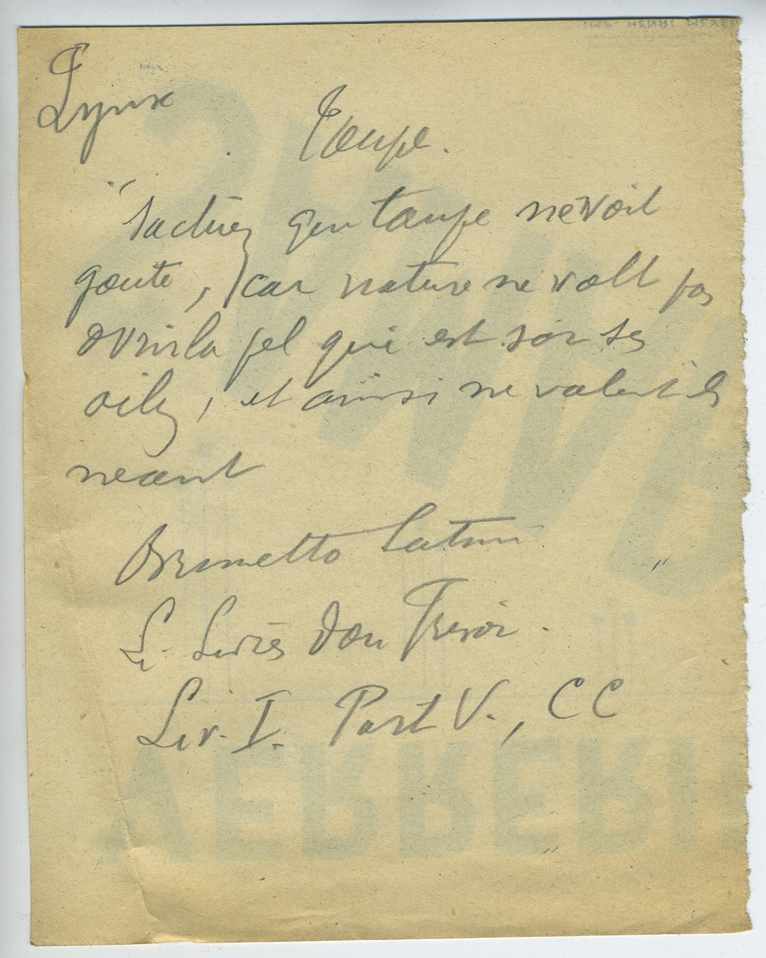 Lynx
Taupe.
"Sachiez que taupe ne voit
goute, car nature ne volt pas
ovrir la pel qui est sor ses
oilz, et ainsi ne valent il
neant
Brunetto Latini
Li Livres dou Tresor.
Liv. I. Part V., CC
VERRERI